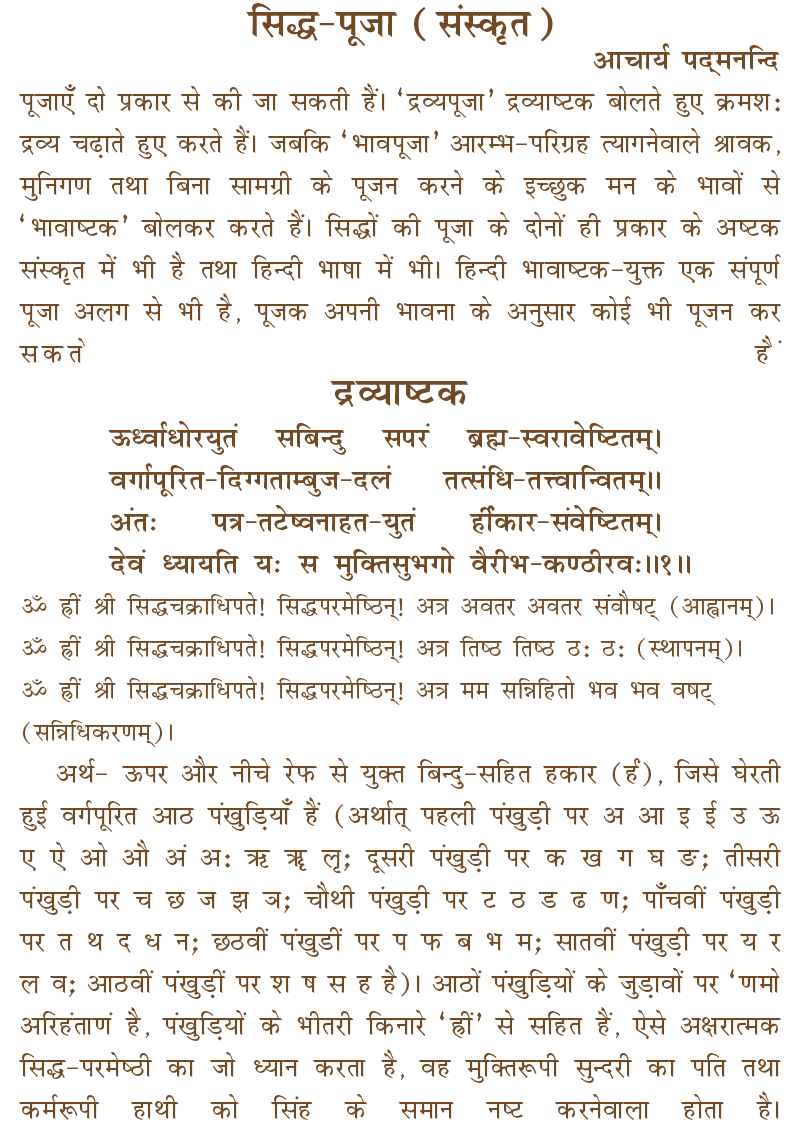 सिद्ध-पूजा ( संस्कृत )
आचार्य पद्‌मनन्दि
पूजाएँ दो प्रकार से की जा सकती हैं। ‘द्रव्यपूजा’ द्रव्याष्टक बोलते हुए क्रमश:
द्रव्य चढ़ाते हुए करते हैं। जबकि ‘भावपूजा’ आरम्भ-परिग्रह त्यागनेवाले श्रावक,
मुनिगण तथा बिना सामग्री के पूजन करने के इच्छुक मन के भावों से
‘भावाष्टक’ बोलकर करते हैं। सिद्धों की पूजा के दोनों ही प्रकार के अष्टक
संस्कृत में भी है तथा हिन्दी भाषा में भी। हिन्दी भावाष्टक-युक्त एक संपूर्ण
पूजा अलग से भी है, पूजक अपनी भावना के अनुसार कोई भी पूजन कर
सकते हैं
द्रव्याष्टक
ऊर्ध्वाधोरयुतं सबिन्दु सपरं ब्रह्म-स्वरावेष्टितम्।
वर्गापूरित-दिग्गताम्बुज-दलं तत्संधि-तत्त्वान्वितम्॥
अंतः पत्र-तटेष्वनाहत-युतं ह्रींकार-संवेष्टितम्।
देवं ध्यायति यः स मुक्तिसुभगो वैरीभ-कण्ठीरवः॥१॥
ॐ ह्रीं श्री सिद्धचक्राधिपते! सिद्धपरमेष्ठिन्! अत्र अवतर अवतर संवौषट् (आह्वानम्)।
ॐ ह्रीं श्री सिद्धचक्राधिपते! सिद्धपरमेष्ठिन्! अत्र तिष्ठ तिष्ठ ठ: ठ: (स्थापनम्)।
ॐ ह्रीं श्री सिद्धचक्राधिपते! सिद्धपरमेष्ठिन्! अत्र मम सन्निहितो भव भव वषट्
(सन्निधिकरणम्)।
अर्थ- ऊपर और नीचे रेफ से युक्त बिन्दु-सहित हकार (र्हं), जिसे घेरती
हुई वर्गपूरित आठ पंखुड़ियाँ हैं (अर्थात् पहली पंखुड़ी पर अ आ इ ई उ ऊ
ए ऐ ओ औ अं अ: ऋ ॠ लृ; दूसरी पंखुड़ी पर क ख ग घ ङ; तीसरी
पंखुड़ी पर च छ ज झ ञ; चौथी पंखुड़ी पर ट ठ ड ढ ण; पाँचवीं पंखुड़ी
पर त थ द ध न; छठवीं पंखुडीं पर प फ ब भ म; सातवीं पंखुड़ी पर य र
ल व; आठवीं पंखुड़ीं पर श ष स ह है)। आठों पंखुड़ियों के जुड़ावों पर ‘णमो
अरिहंताणं है, पंखुड़ियों के भीतरी किनारे ‘ह्रीं’ से सहित हैं, ऐसे अक्षरात्मक
सिद्ध-परमेष्ठी का जो ध्यान करता है, वह मुक्तिरूपी सुन्दरी का पति तथा
कर्मरूपी हाथी को सिंह के समान नष्ट करनेवाला होता है।